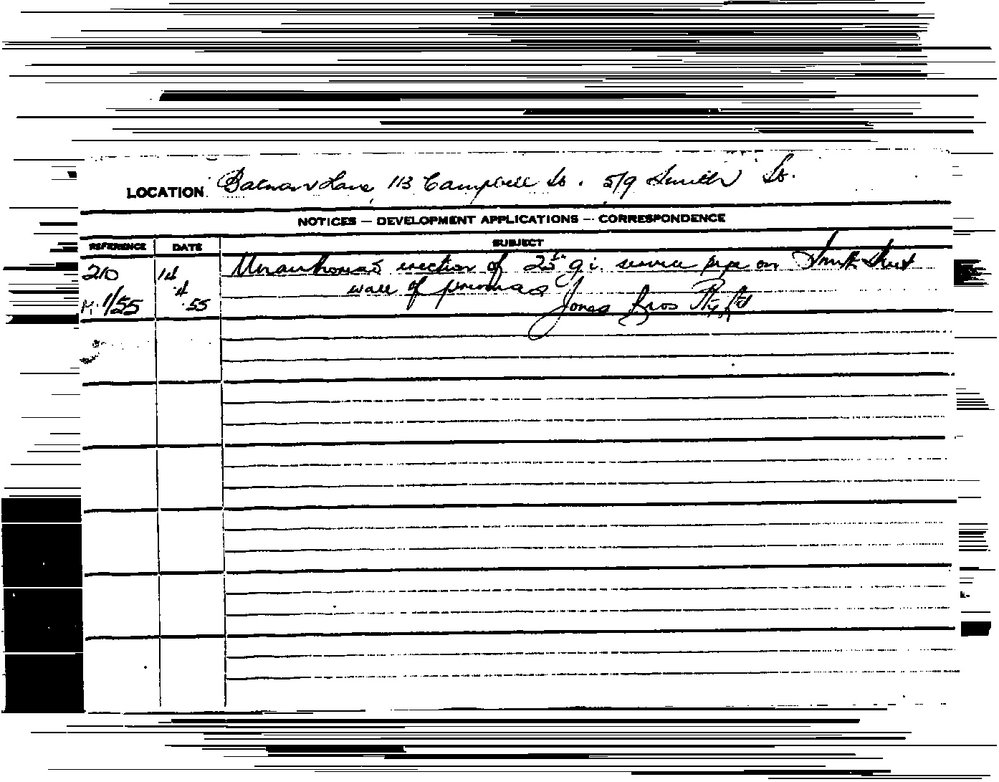 LOCATION. Batman Lane 113 Campbell St. 5/9 Smith St.
NOTICES — DEVELOPMENT APPLICATIONS — CORRESPONDENCE
REFERENCE DATE SUBJECT
210 14 erection of 25 g.i. service pipe on Smith Street
1/55 4 wall of premises
55 Jones Bros Pty Ltd